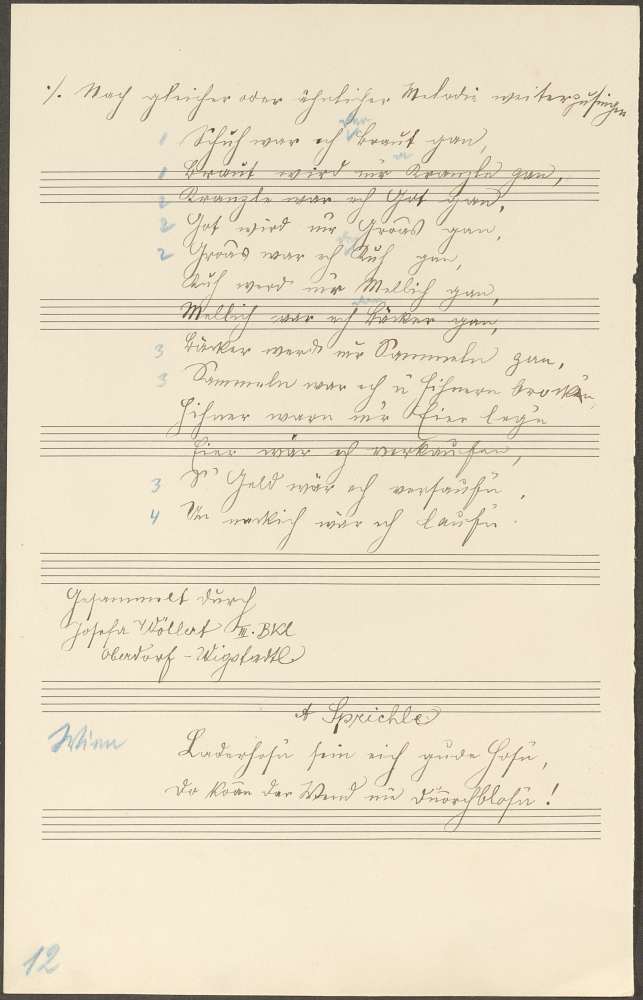 ·/. Nach gleicher oder ähnlicher Melodie weiterzusingen.
1 Schuh war ech der Braut gan,
1 Braut wird mir a Kranzle gan,
2 Kranzle war ech Got gan,
2 Got wird mir Gröös gan,
2 Gröös war ech der Kuh gan,
Kuh werd mir Mellich gan,
Mellich war ech dem Bäcker gan,
3 Bäcker werd mir Sammeln gan,
3 Sammeln war ech ü Hihnern brocken,
Hihner warn mir Eier leg'n
Eier wär ech verkaufen,
3 's Geld wär ech versaufn,
4 Un nackich wär ech laufn.
Gesammelt durch
Josefa Wöllert III. BKl
Oberdorf - Wigstadtl
A Sprichle
Wien
Laderhosn sein eich gude Hosn,
Do koan der Wend nie duorchblosn!
12